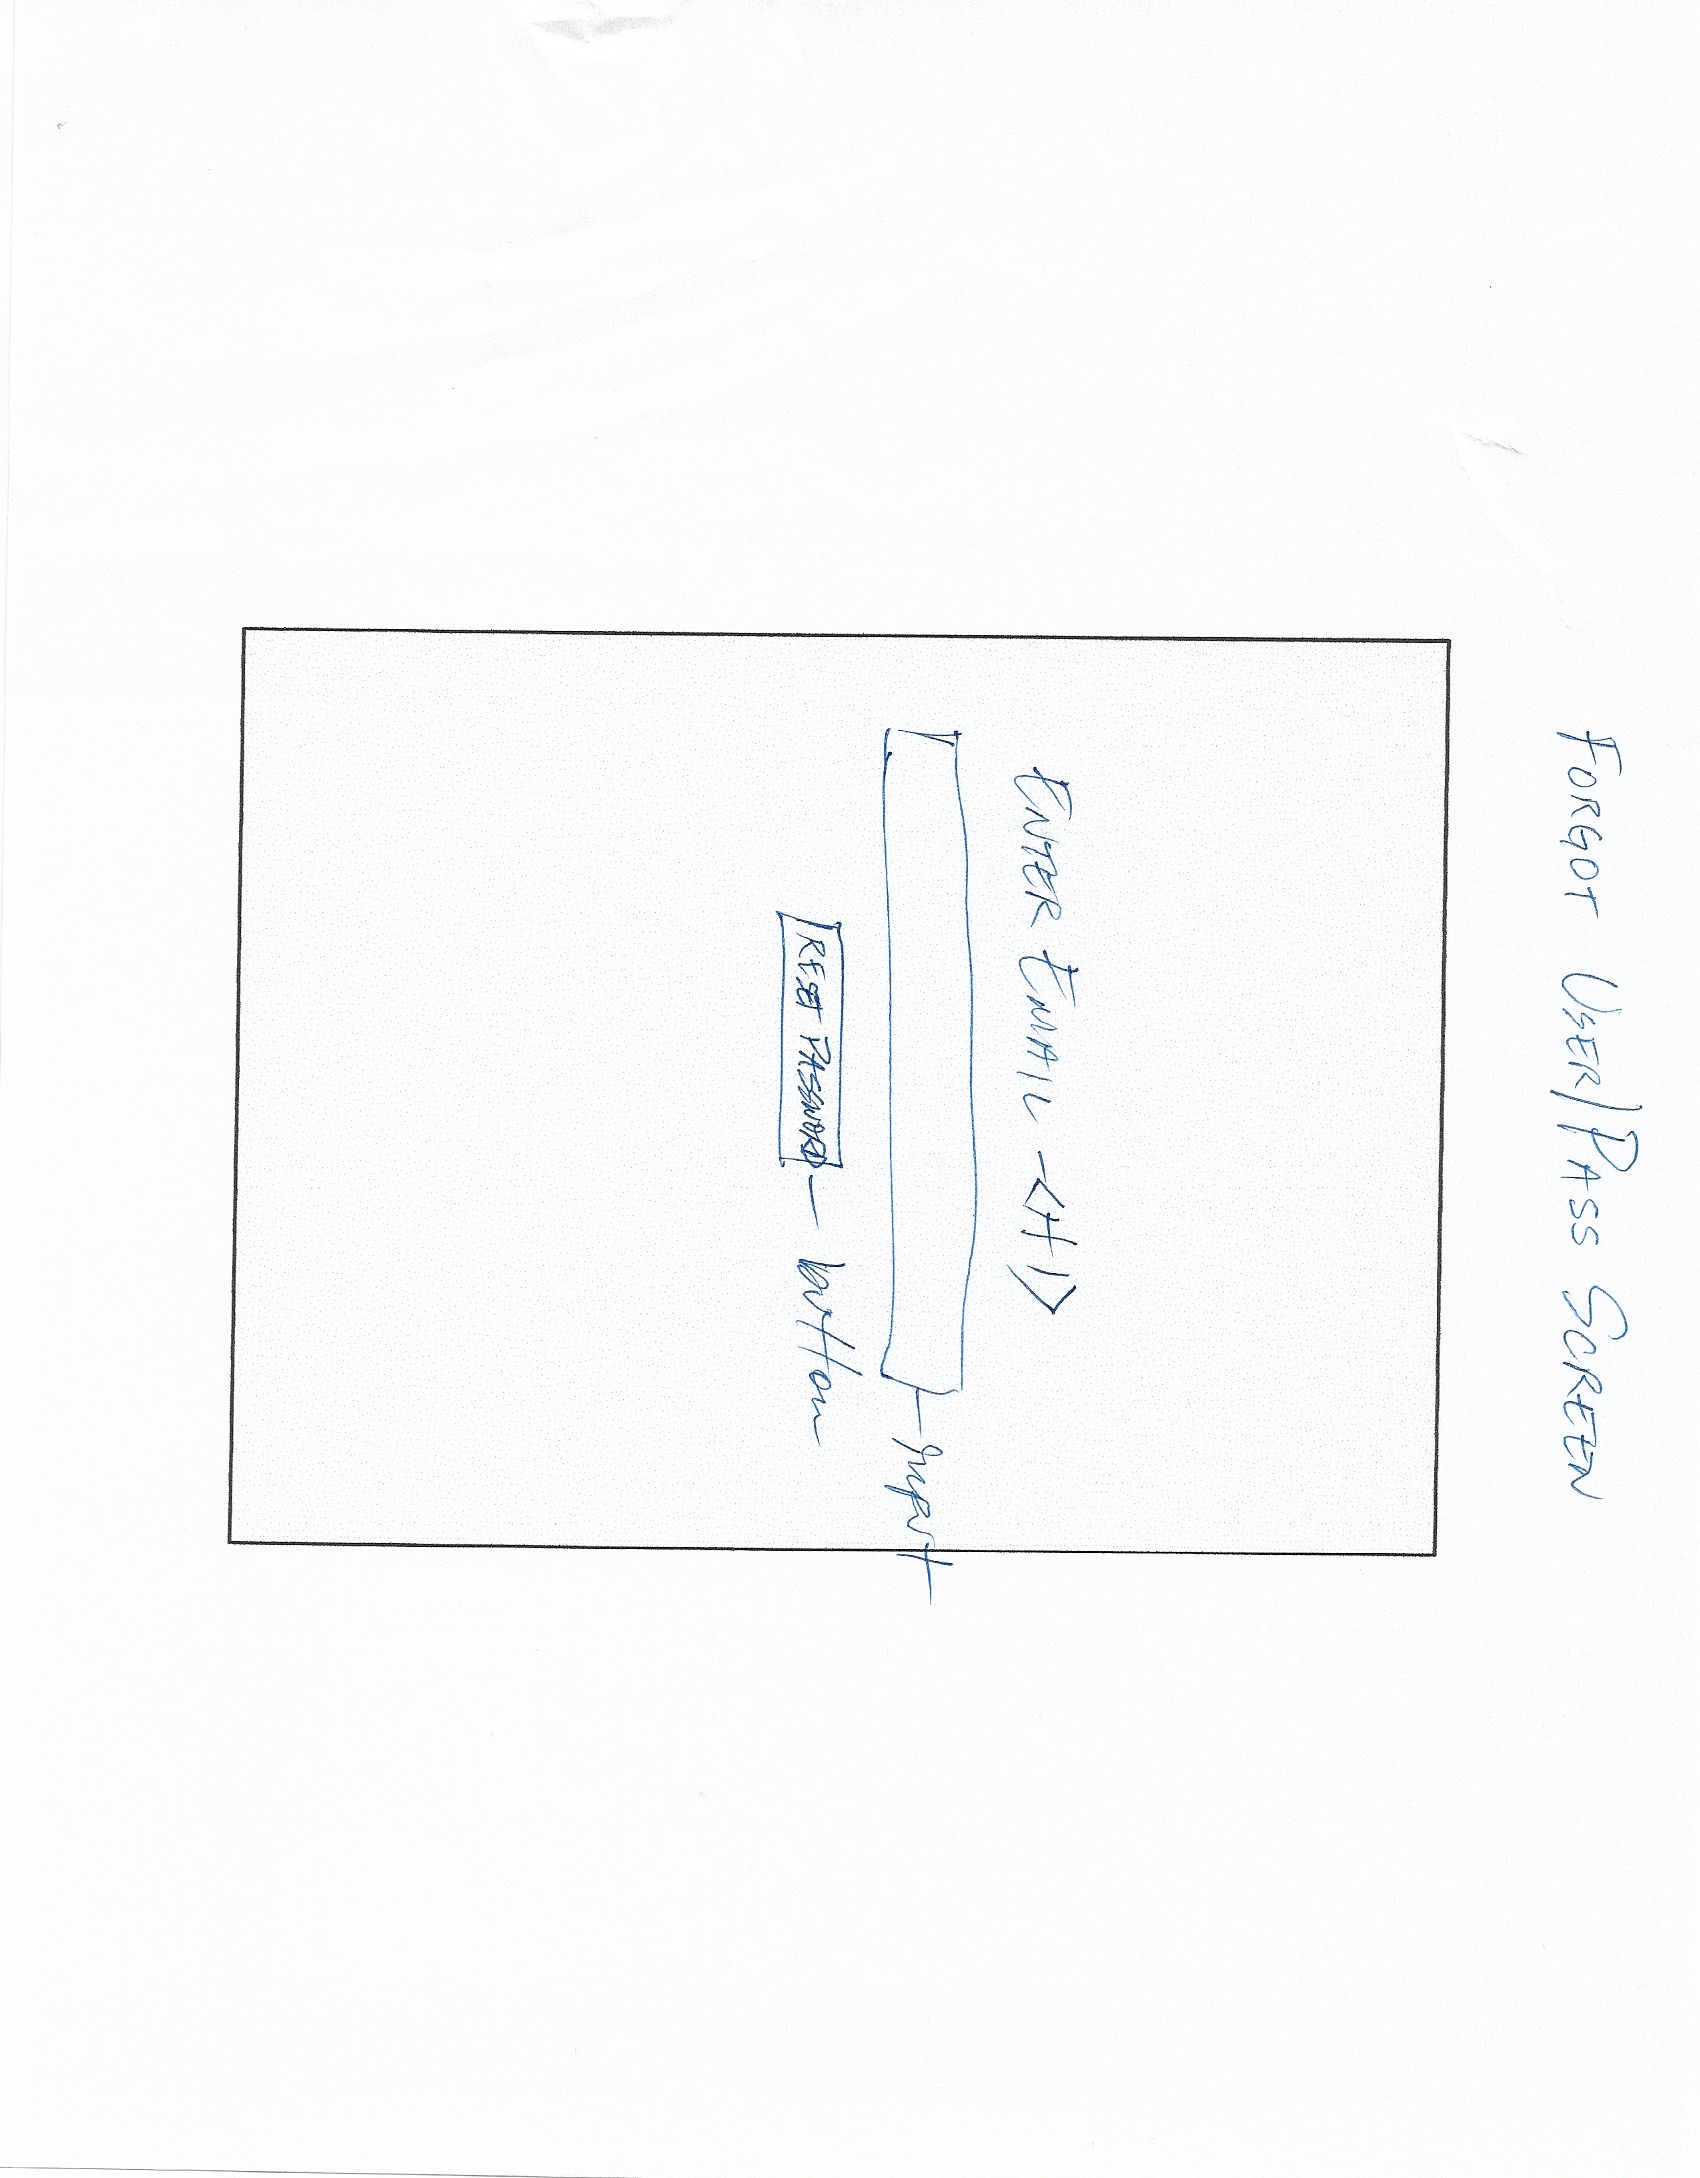 FORGOT USER/PASS SCREEN
ENTER EMAIL - <H1>
- input
RESET PASSWORD - button